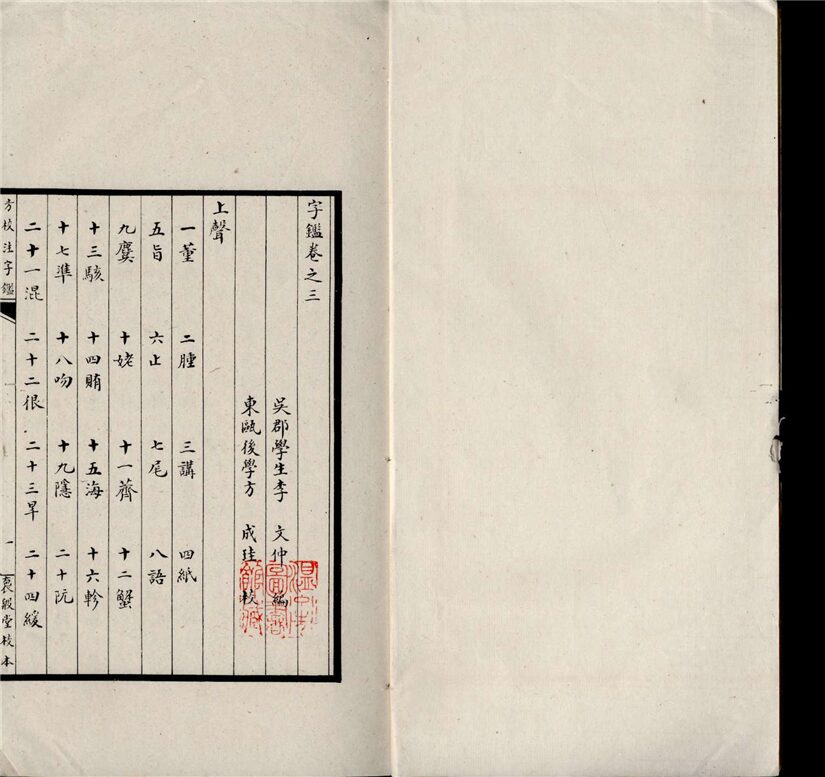 字鑑卷之三
吳郡學生李 文仲 編
東甌後學方 成珪 校
上聲
一董 二腫 三講 四紙
五旨 六止 七尾 八語
九麌 十姥 十一薺 十二蟹
十三駭 十四賄 十五海 十六軫
十七準 十八吻 十九隱 二十阮
二十一混 二十二很 二十三旱 二十四緩
方校注字鑑 一 裒殷堂校本